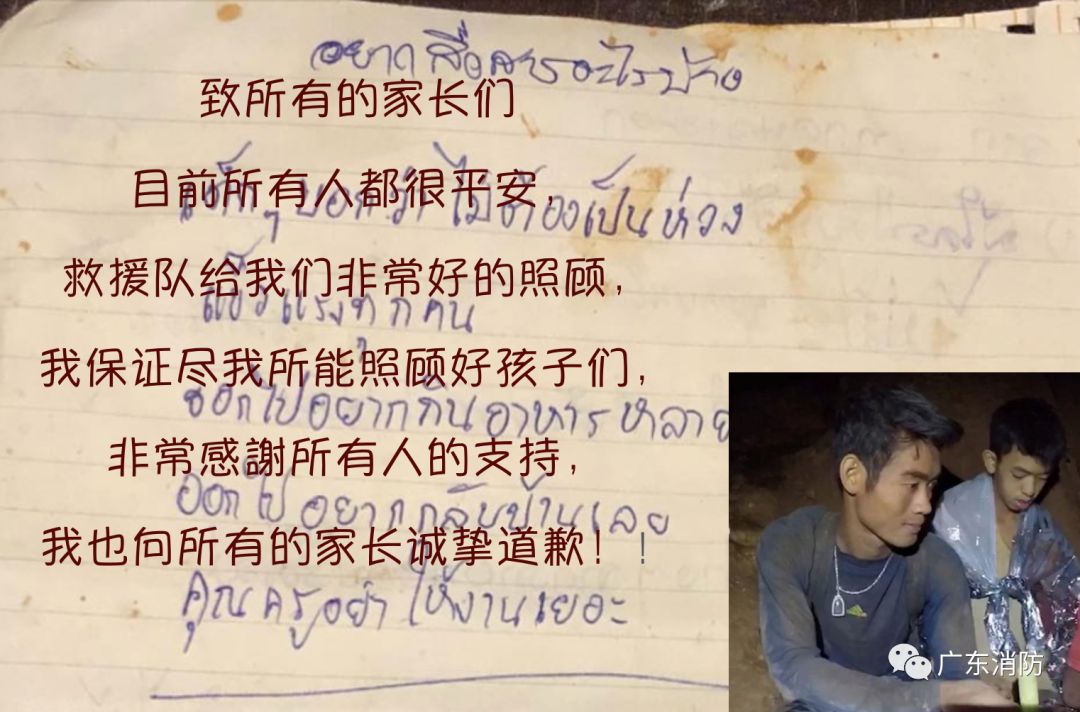 อยากสื่อสารอะไรบ้าง
致所有的家长们
目前所有人都很平安，
เด็กๆ บอกว่าไม่ต้องเป็นห่วง
救援队给我们非常好的照顾，
แข็งแรงทุกคน
我保证尽我所能照顾好孩子们，
ออกไปอยากกินอาหารหลาย
非常感謝所有人的支持，
ออกไปอยากกลับบ้านเลย
我也向所有的家长诚挚道歉！！
คุณครูอย่าให้งานเยอะ
广东消防